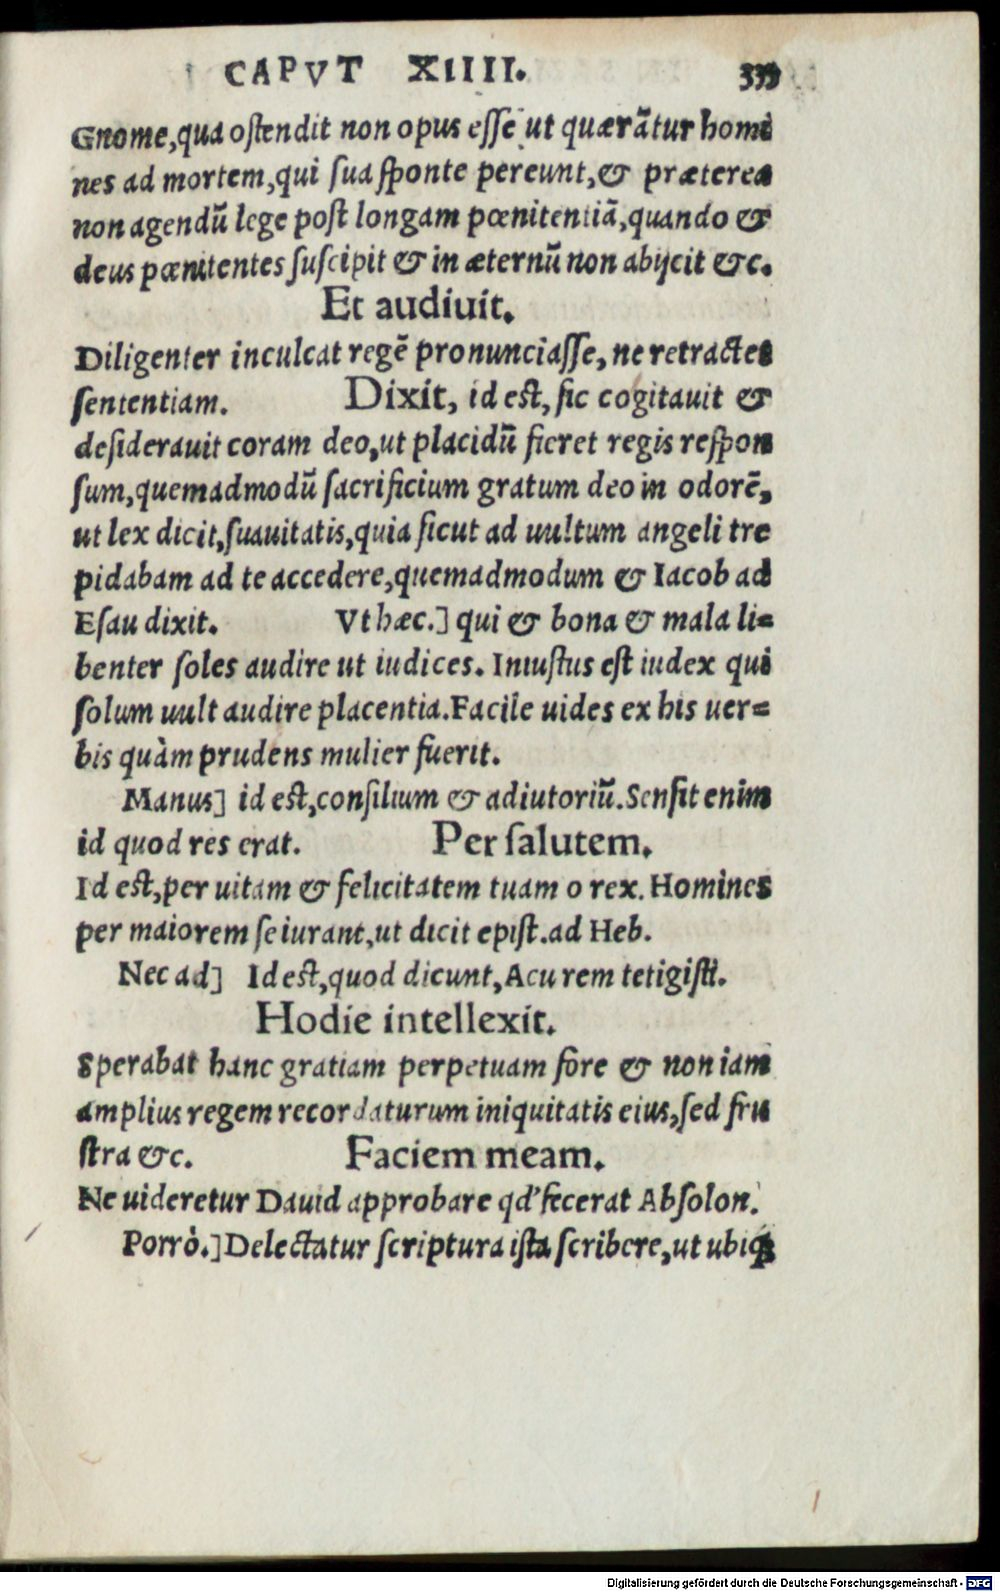 CAPVT XIIII. 339
Gnome,qua ostendit non opus esse ut quærãtur homi
nes ad mortem,qui sua sponte pereunt,& præterea
non agendũ lege post longam pœnitentiã,quando &
deus pœnitentes suscipit & in æternũ non abijcit &c.
Et audiuit.
Diligenter inculcat regẽ pronunciasse, ne retractes
sententiam. Dixit, id est, sic cogitauit &
desiderauit coram deo,ut placidũ fieret regis respon
sum,quemadmodũ sacrificium gratum deo in odorẽ,
ut lex dicit,suauitatis,quia sicut ad uultum angeli tre
pidabam ad te accedere,quemadmodum & Iacob ad
Esau dixit. Vt hæc.] qui & bona & mala li=
benter soles audire ut iudices. Iniustus est iudex qui
solum uult audire placentia.Facile uides ex his uer=
bis quàm prudens mulier fuerit.
Manus] id est,consilium & adiutoriũ.Sensit enim
id quod res erat. Per salutem.
Id est,per uitam & felicitatem tuam o rex. Homines
per maiorem se iurant,ut dicit epist.ad Heb.
Nec ad] Id est,quod dicunt,Acu rem tetigisti.
Hodie intellexit.
Sperabat hanc gratiam perpetuam fore & non iam
amplius regem recordaturum iniquitatis eius,sed fru
stra &c. Faciem meam.
Ne uideretur Dauid approbare qd' fecerat Absolon.
Porrò.]Delectatur scriptura ista scribere,ut ubiq;
Digitalisierung gefördert durch die Deutsche Forschungsgemeinschaft - DFG